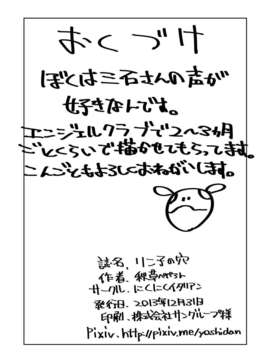 おくづけ
ぼくは三石さんの声が
好きなんです。
エンジェルクラブで2~3ヵ月
ごとくらいで描かせてもらってます。
こんごともよろしくおねがいします。
誌名、リこ子の穴
作者、
サークル、にくにくイタリアン
発行日、2013年12月31日
印刷、株式会社サングループ様
Pixiv、http://pixiv.me/yoshidan